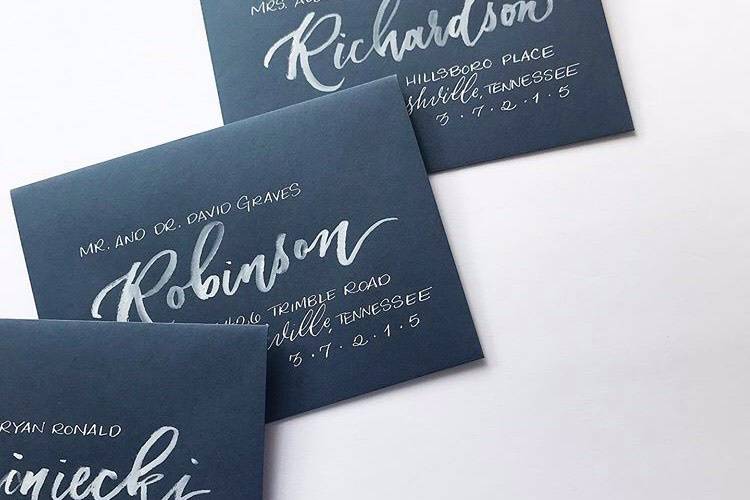 MRS.
Richardson
HILLSBORO PLACE
shville, TENNESSEE
3·7·2·1·5
MR. AND DR. DAVID GRAVES
Robinson
TRIMBLE ROAD
ville, TENNESSEE
3·7·2·1·5
RYAN RONALD
iniecki